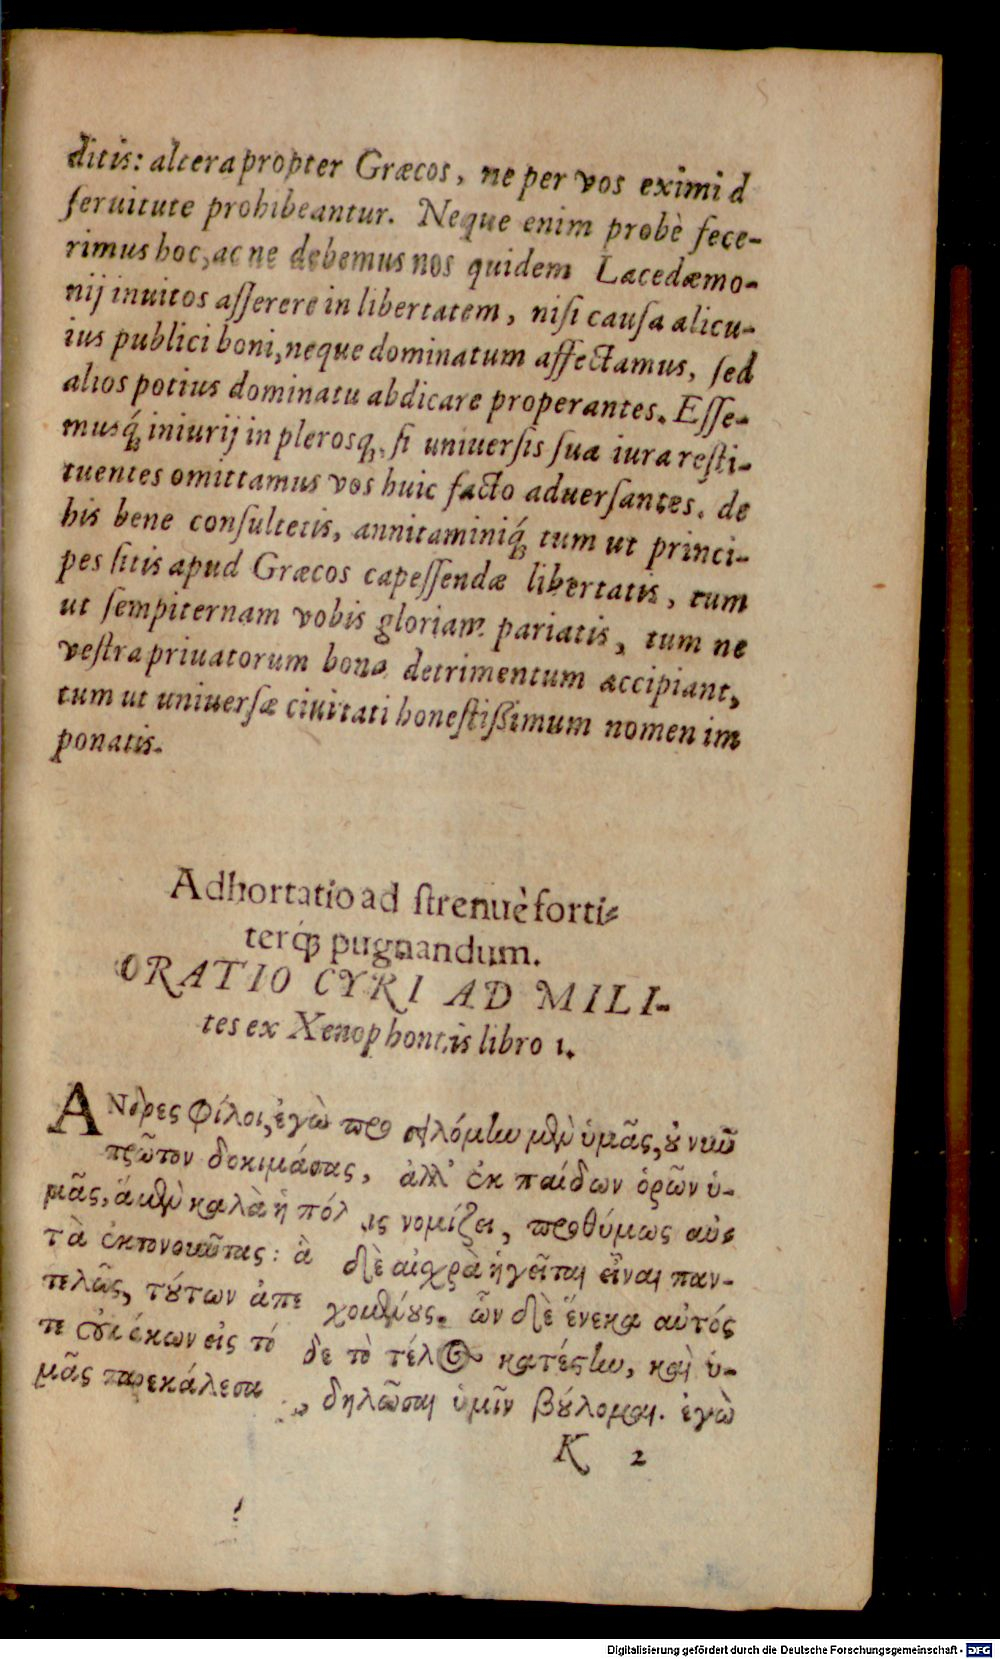 ditis: altera propter Græcos, ne per vos eximi d
ſeruitute prohibeantur. Neque enim probè fece-
rimus hoc, ac ne debemus nos quidem Lacedæmo-
nij inuitos aſſerere in libertatem, niſi cauſa alicu-
ius publici boni, neque dominatum affectamus, ſed
alios potius dominatu abdicare properantes. Eſſe-
musq́; iniurij in plerosq;, ſi uniuerſis ſua iura reſti-
tuentes omittamus vos huic facto aduerſantes. de
his bene conſultetis, annitaminiq́; tum ut princi-
pes ſitis apud Græcos capeſſendæ libertatis, tum
ut ſempiternam vobis gloriam pariatis, tum ne
veſtra priuatorum bona detrimentum accipiant,
tum ut uniuerſæ ciuitati honeſtißimum nomen im
ponatis.
Adhortatio ad ſtrenuè forti-
terq́; pugnandum.
ORATIO CYRI AD MILI-
tes ex Xenophontis libro 1.
ΑΝδρες φίλοι, ἐγὼ προσειλόμην μὲν ὑμᾶς, οὐ νῦν
πρῶτον δοκιμάσας, ἀλλ' ἐκ παίδων ὁρῶν ὑ-
μᾶς, ἃ μὲν καλὰ ἡ πόλις νομίζει, προθύμως αὐ-
τὰ ἐκπονοῦντας: ἃ δὲ αἰσχρὰ ἡγεῖται εἶναι παν-
τελῶς, τούτων ἀπεχομένους. ὧν δὲ ἕνεκα αὐτός
τε οὐκ ἄκων εἰς τόδε τὸ τέλος κατέστην, καὶ ὑ-
μᾶς παρεκάλεσα, δηλῶσαι ὑμῖν βούλομαι. ἐγὼ
K 2
Digitalisierung gefördert durch die Deutsche Forschungsgemeinschaft - DFG